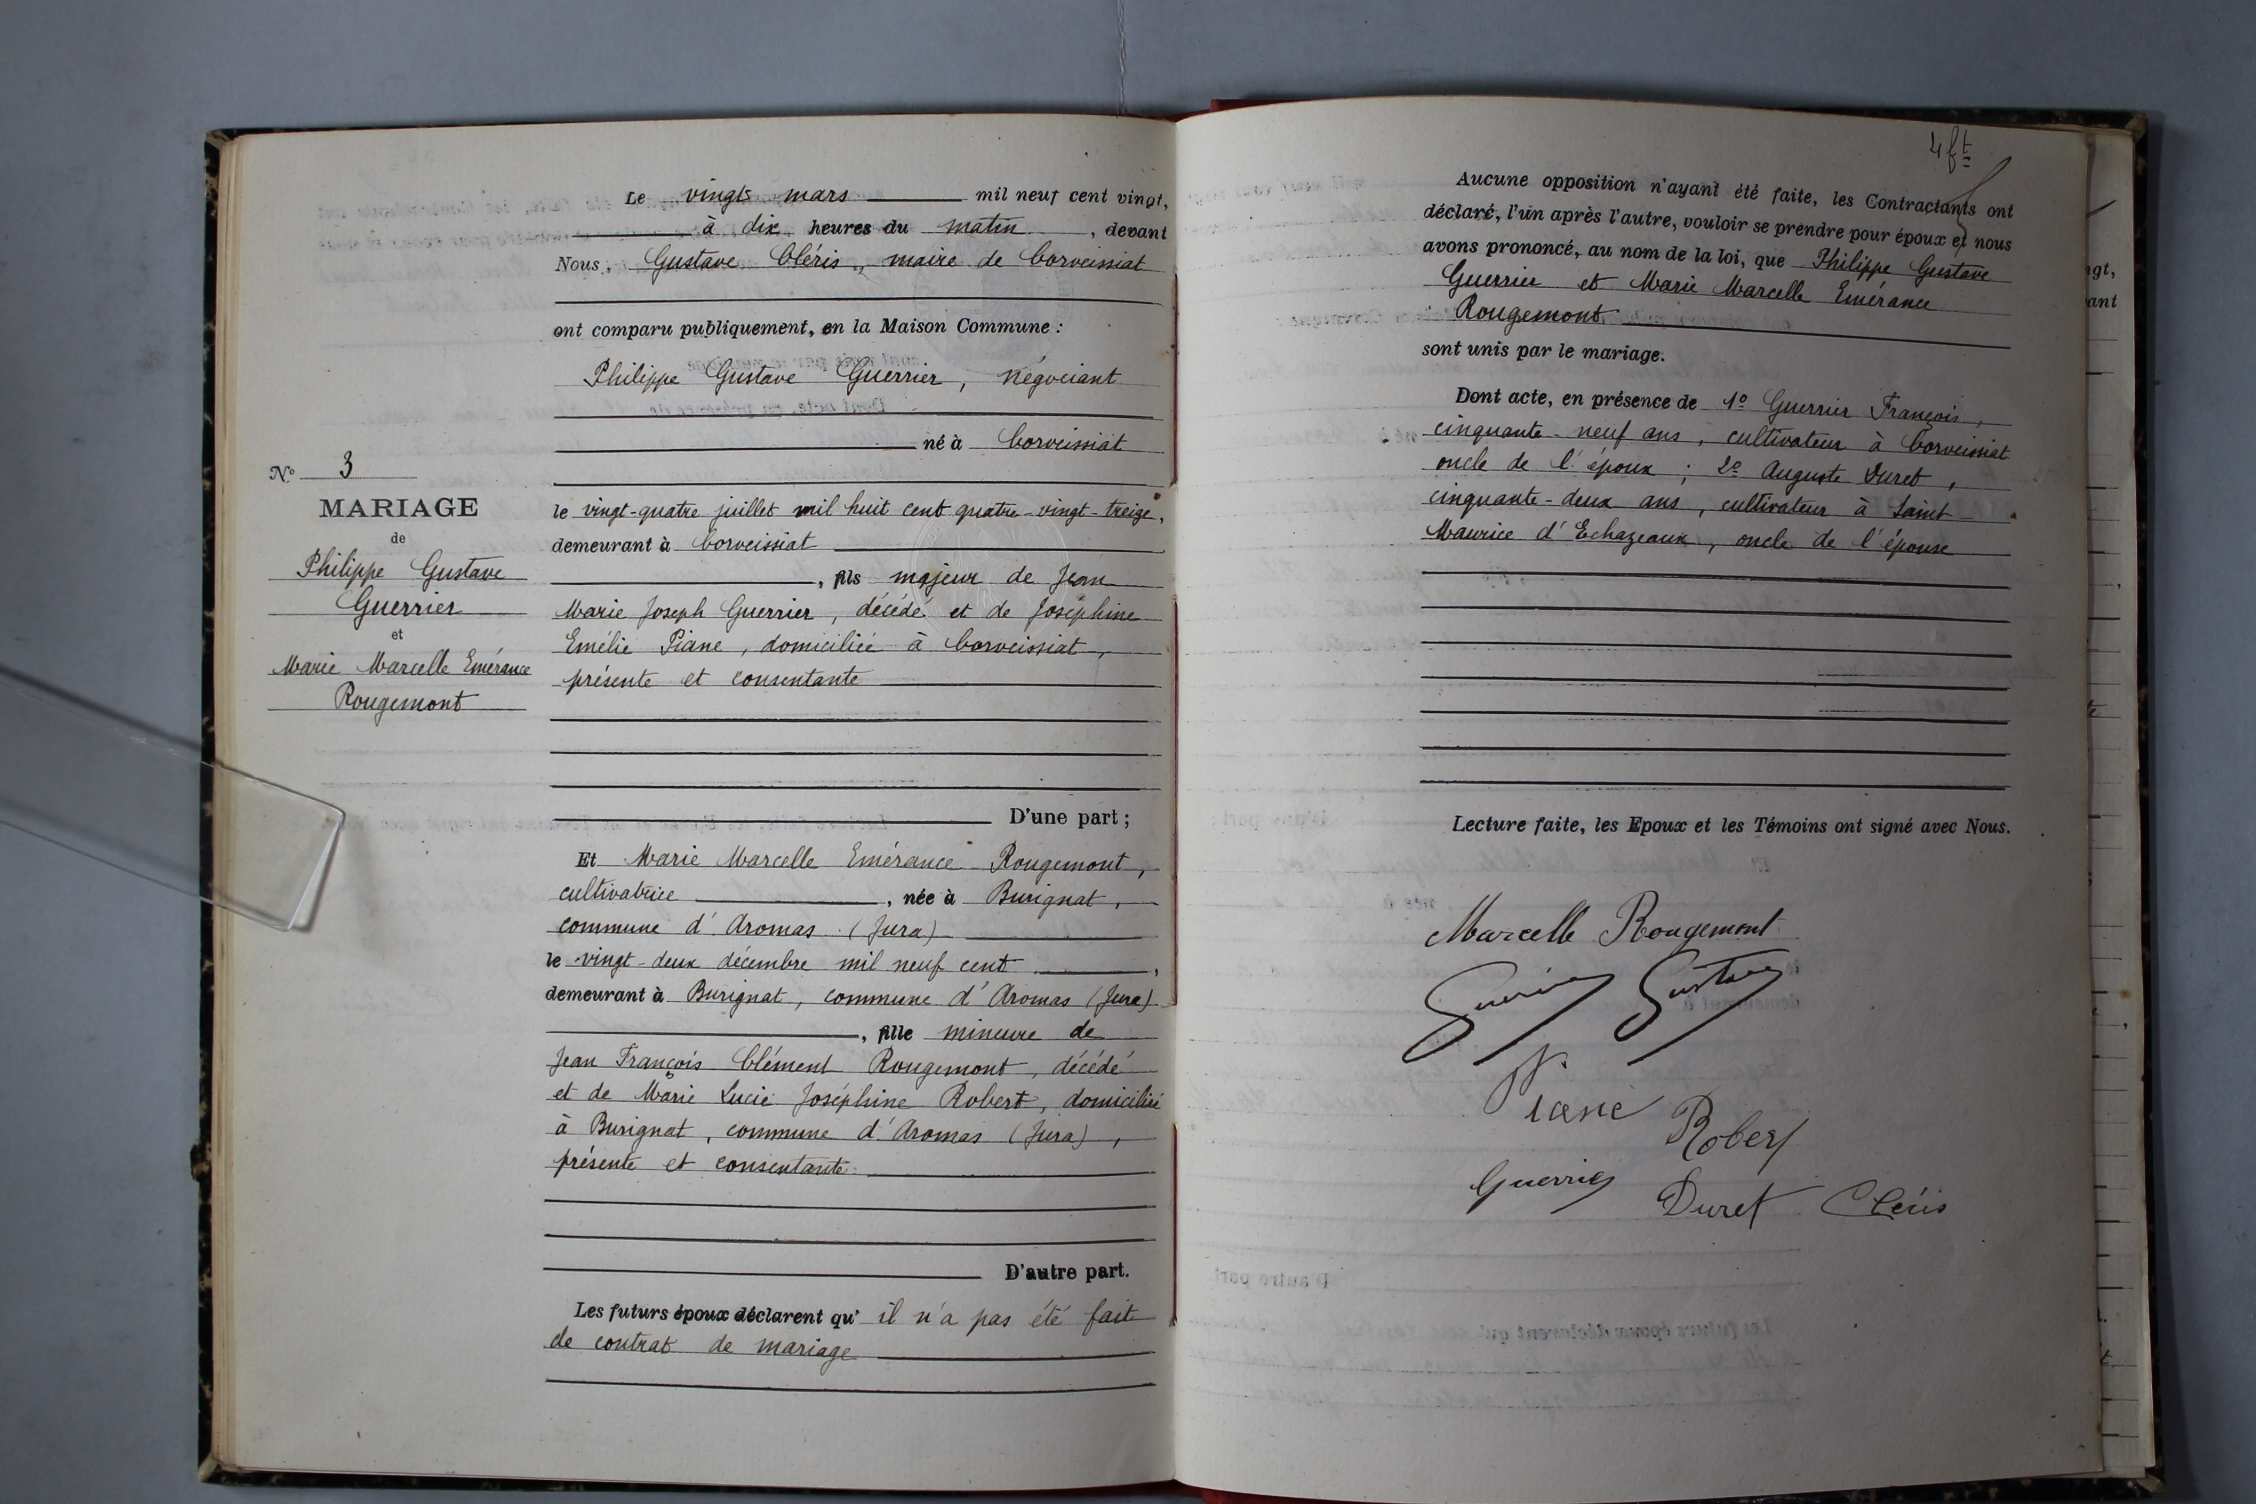 Le vingt mars mil neuf cent vingt,
à dix heures du matin, devant
Nous, Gustave Cléris, maire de Corveissiat
ont comparu publiquement, en la Maison Commune :
Philippe Gustave Guerrier, négociant
né à Corveissiat
le vingt-quatre juillet mil huit cent quatre-vingt-treize,
demeurant à Corveissiat
, fils majeur de Jean
Marie Joseph Guerrier, décédé et de Joséphine
Emélie Piane, domiciliée à Corveissiat,
présente et consentante
D'une part ;
N° 3
MARIAGE
de
Philippe Gustave
Guerrier
et
Marie Marcelle Emérance
Rougemont
Et Marie Marcelle Emérance Rougemont,
cultivatrice, née à Burignat,
commune d'Aromas (Jura)
le vingt-deux décembre mil neuf cent,
demeurant à Burignat, commune d'Aromas (Jura)
, fille mineure de
Jean François Clément Rougemont, décédé
et de Marie Lucie Joséphine Robert, domiciliée
à Burignat, commune d'Aromas (Jura),
présente et consentante
D'autre part.
Les futurs époux déclarent qu'il n'a pas été fait
de contrat de mariage
4 ft
Aucune opposition n'ayant été faite, les Contractants ont
déclaré, l'un après l'autre, vouloir se prendre pour époux et nous
avons prononcé, au nom de la loi, que Philippe Gustave
Guerrier et Marie Marcelle Emérance
Rougemont
sont unis par le mariage.
Dont acte, en présence de 1º Guerrier François,
cinquante-neuf ans, cultivateur à Corveissiat
oncle de l'époux ; 2º Auguste Duret,
cinquante-deux ans, cultivateur à Saint
Maurice d'Echazeaux, oncle de l'épouse
Lecture faite, les Epoux et les Témoins ont signé avec Nous.
Marcelle Rougemont
Guerrier Gustave
Piane
Robert
Guerrier
Duret Cléris